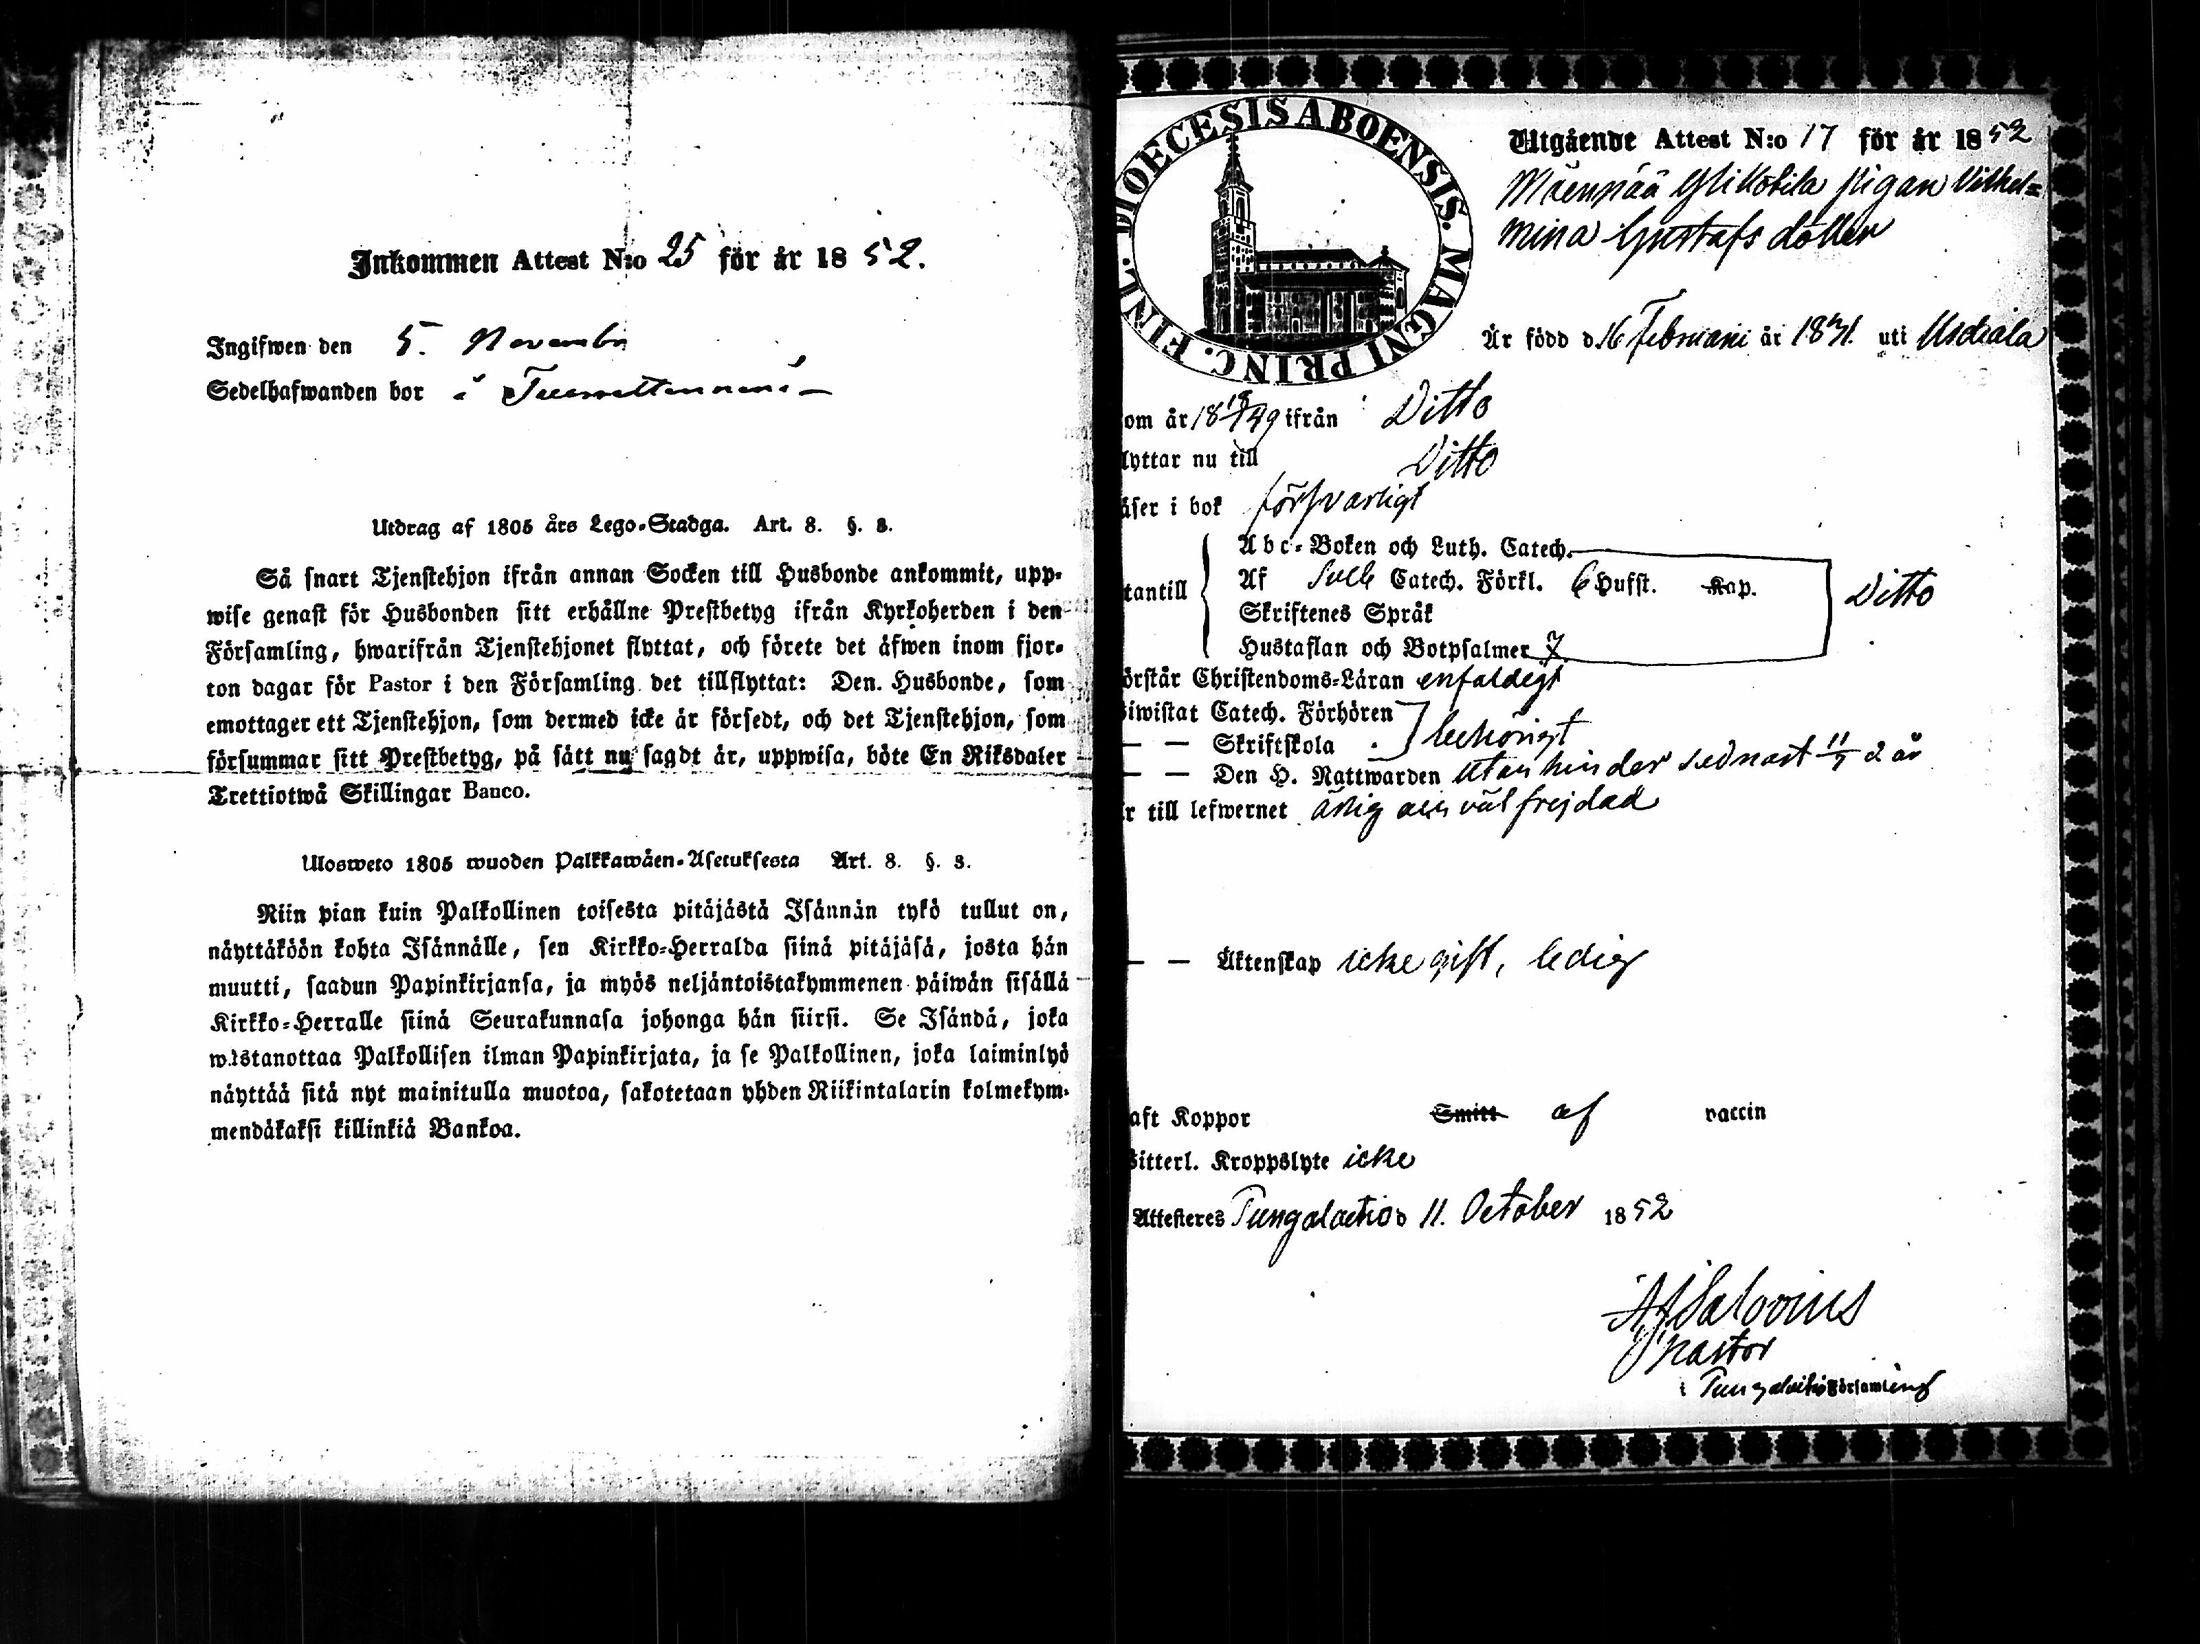 Inkommen Attest N:o 25 för år 1852.
Ingifwen den 5. November
Sedelhafwanden bor i
Utdrag af 1805 års Lego-Stadga. Art. 8. §. 3.
Så snart Tjenstehjon ifrån annan Socken till Husbonde ankommit, upp-
wise genast för Husbonden sitt erhållne Prestbetyg ifrån Kyrkoherden i den
Församling, hwarifrån Tjenstehjonet flyttat, och förete det äfwen inom fjor-
ton dagar för Pastor i den Församling det tillflyttat: Den Husbonde, som
emottager ett Tjenstehjon, som dermed icke är försedt, och det Tjenstehjon, som
försummar sitt Prestbetyg, på sätt nu sagdt är, uppwisa, böte En Riksdaler
Trettiotwå Skillingar Banco.
Ulosweto 1805 wuoden Palkkawäen-Asetuksesta Art. 8. §. 3.
Niin pian kuin Palkollinen toisesta pitäjästä Isännän tykö tullut on,
näyttäköön kohta Isännälle, sen Kirkko-Herralda siinä pitäjäsä, josta hän
muutti, saadun Papinkirjansa, ja myös neljäntoistakymmenen päiwän sisällä
Kirkko-Herralle siinä Seurakunnasa johonga hän siirsi. Se Isändä, joka
wastanottaa Palkollisen ilman Papinkirjata, ja se Palkollinen, joka laiminlyö
näyttää sitä nyt mainitulla muotoa, sakotetaan yhden Riikintalarin kolmekym-
mendäkaksi killinkiä Bankoa.
DIOECESIS ABOENSIS. MAGNI PRINC. FINL.
Utgående Attest N:o 17 för år 1852
Mäenpää Ylikötila pigan Vilhel=
mina Gustafs dotter
Är född d. 16 Februarii år 1831. uti Urdiala
om år 18 18/ 49 ifrån Ditto
lyttar nu till Ditto
äser i bok försvarligt
tantill
Abc-Boken och Luth. Catech.
Af Sveb Catech. Förkl. 6 Hufst. Kap.
Skriftenes Språk
Hustaflan och Botpsalmer 7
Ditto
örstår Christendoms-Läran enfaldigt
iwistat Catech. Förhören
— — Skriftskola
behörigt
— — Den H. Nattwarden utan hinder sednast 11/7 d år
r till lefwernet ärlig och väl frejdad
— — Äktenskap icke gift, ledig
aft Koppor Smitt af vaccin
itterl. Kroppslyte icke
Attesteres Tungelaetio d 11. October 1852
Salovius
Pastor
i Tungelaetio Församling